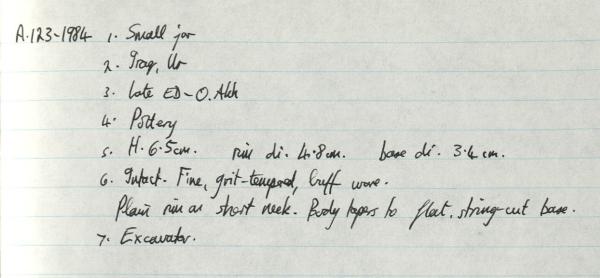 A.123-1984 1. Small jar
2. Iraq, Ur
3. Late ED-O.Akk
4. Pottery
5. H. 6.5cm. rim di. 4.8cm. base di. 3.4cm.
6. Intact. Fine, grit-tempered, buff ware.
Plain rim on short neck. Body tapers to flat, string-cut base.
7. Excavator.